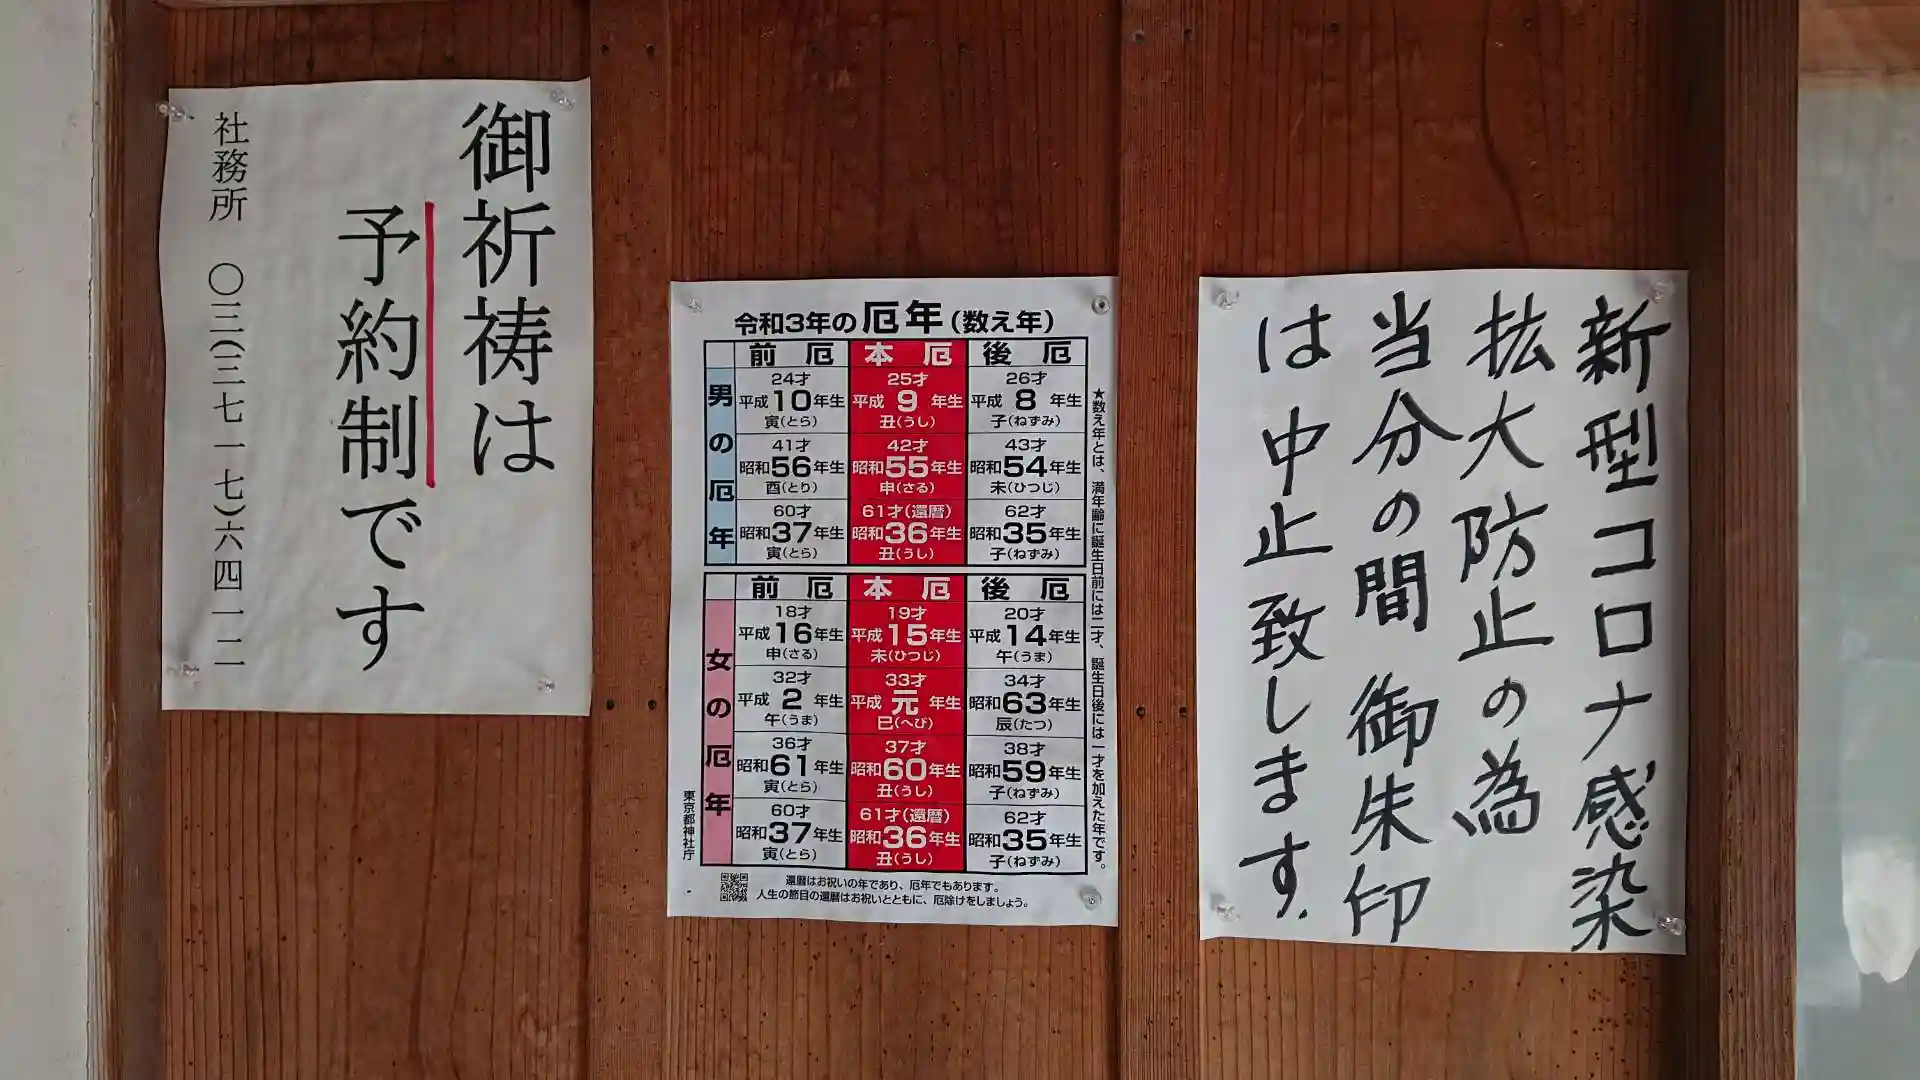 御祈祷は
予約制です
社務所 〇三(三七一七)六四一二
令和3年の厄年(数え年)
男の厄年
前厄 本厄 後厄
24才 25才 26才
平成10年生 平成9年生 平成8年生
寅(とら) 丑(うし) 子(ねずみ)
41才 42才 43才
昭和56年生 昭和55年生 昭和54年生
酉(とり) 申(さる) 未(ひつじ)
60才 61才(還暦) 62才
昭和37年生 昭和36年生 昭和35年生
寅(とら) 丑(うし) 子(ねずみ)
女の厄年
前厄 本厄 後厄
18才 19才 20才
平成16年生 平成15年生 平成14年生
申(さる) 未(ひつじ) 午(うま)
32才 33才 34才
平成2年生 平成元年生 昭和63年生
午(うま) 巳(へび) 辰(たつ)
36才 37才 38才
昭和61年生 昭和60年生 昭和59年生
寅(とら) 丑(うし) 子(ねずみ)
60才 61才(還暦) 62才
昭和37年生 昭和36年生 昭和35年生
寅(とら) 丑(うし) 子(ねずみ)
★数え年とは、満年齢に誕生日前には二才、誕生日後には一才を加えた年です。
東京都神社庁
還暦はお祝いの年であり、厄年でもあります。
人生の節目の還暦はお祝いとともに、厄除けをしましょう。
新型コロナ感染
拡大防止の為
当分の間 御朱印
は中止致します.